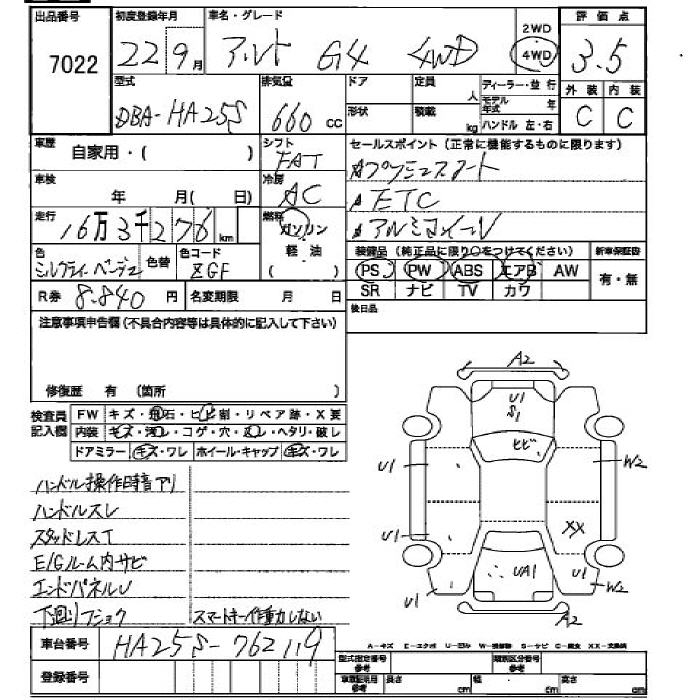 出品番号 初度登録年月 車名・グレード 評価点
7022 22 9月 アルト G4 4WD 2WD 4WD 3.5
型式 排気量 ドア 定員 人 ディーラー・並行 外装 内装
DBA-HA25S 660cc 形状 積載 kg モデル年式 年 ハンドル 左・右 C C
車歴 自家用・( ) シフト FAT セールスポイント(正常に機能するものに限ります)
車検 年 月( 日) 冷房 AC プッシュスタート
ETC
走行 16万3千276km 燃料 ガソリン アルミホイール
軽油 ( )
色 ミルクティーベージュ 色替 色コード ZGF 装備品(純正品に限り○をつけてください) 新車保証書
PS PW ABS エアB AW 有・無
R券 8.840円 名変期限 月 日 SR ナビ TV カワ
注意事項申告欄(不具合内容等は具体的に記入して下さい) 後日品
修復歴 有 (箇所 )
検査員記入欄 FW キズ・飛石・ヒビ割・リペア跡・X要
内装 キズ・汚レ・コゲ・穴・ヘタリ・破レ
ドアミラー キズ・ワレ ホイール・キャップ キズ・ワレ
A2
U1
S1
ヒビ
U1 W2
U1 XX
UA1
U1 W2
A2
ハンドル操作時音アリ
ハンドルスレ
スタッドレスT
E/Gルーム内サビ
エンドパネルU
下廻りフショク スマートキー作動しない
車台番号 HA25S-762119
A-キズ E-エクボ U-凹み W-補修跡 S-サビ C-腐食 XX-交換済
登録番号 型式指定番号 参考 類別区分番号 参考
車庫証明用 参考 長さ cm 幅 cm 高さ cm